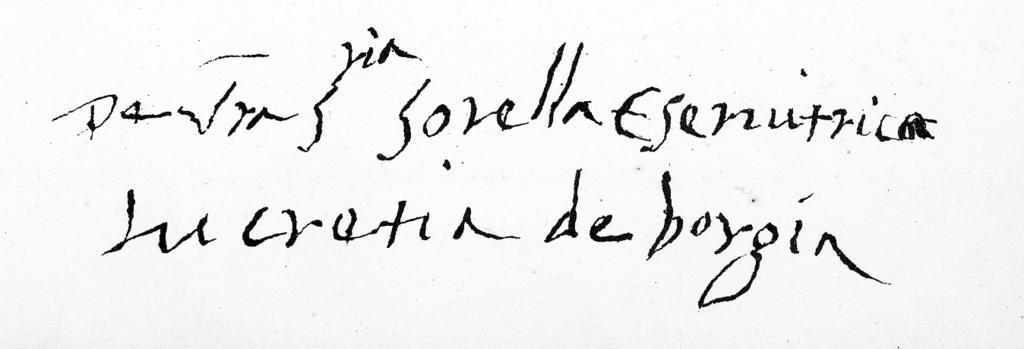 De vra S ria sorella E seruitrica
lucretia de borgia